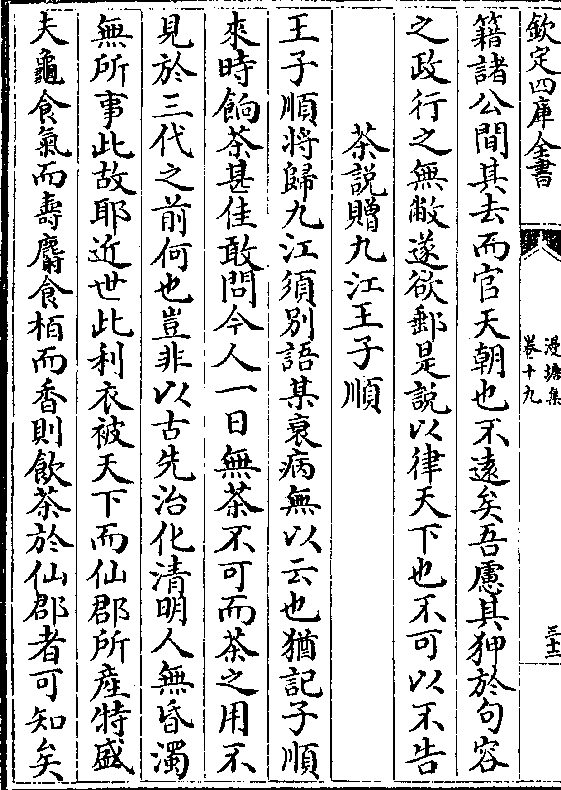 欽定四庫全書
漫塘集
卷十九
三十二
籍諸公間其去而官天朝也不遠矣吾慮其狎於句容
之政行之無敝遂欲郵是説以律天下也不可以不告
茶説贈九江王子順
王子順將歸九江須別語某衰病無以云也猶記子順
來時餉茶甚佳敢問今人一日無茶不可而茶之用不
見於三代之前何也豈非以古先治化清明人無昏濁
無所事此故耶近世此利衣被天下而仙郡所産特盛
夫龜食氣而壽麝食栢而香則飲茶於仙郡者可知矣